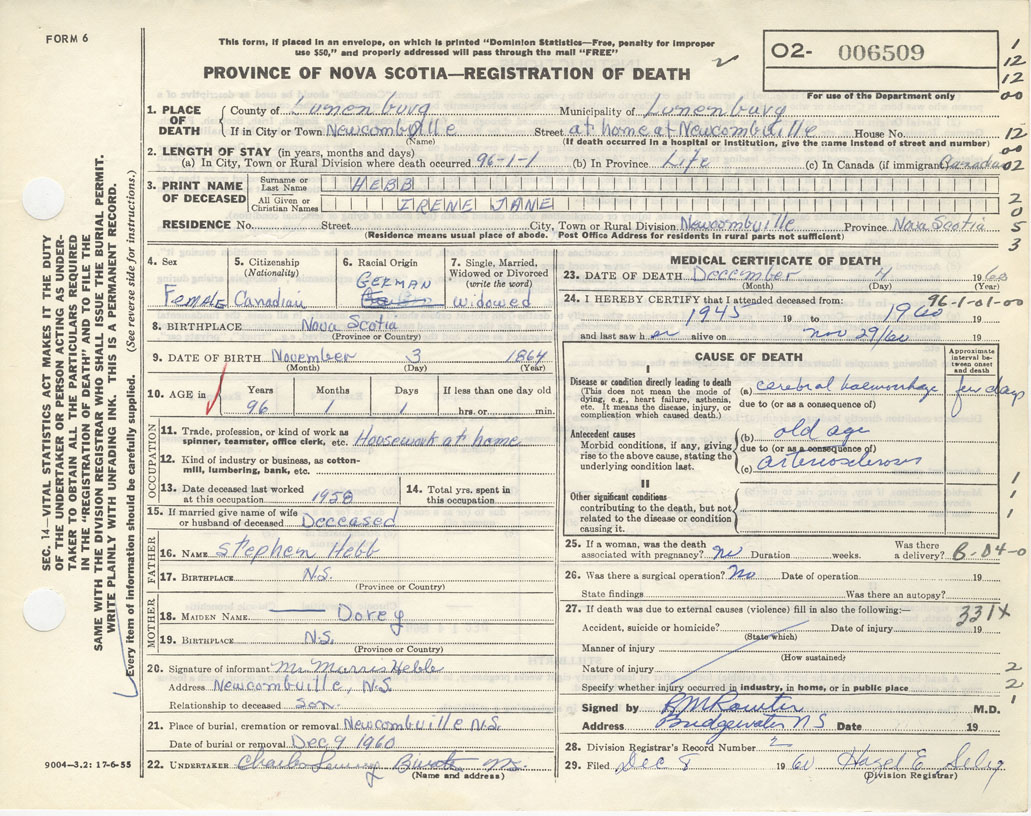 FORM 6
This form, if placed in an envelope, on which is printed "Dominion Statistics—Free, penalty for improper
use $50," and properly addressed will pass through the mail "FREE"
PROVINCE OF NOVA SCOTIA—REGISTRATION OF DEATH
02- 006509
For use of the Department only
1
12
12
00
1. PLACE OF DEATH
County of Lunenburg Municipality of Lunenburg
If in City or Town Newcombville Street at home at Newcombville House No. 12
(Name) (If death occurred in a hospital or institution, give the name instead of street and number)
00
2. LENGTH OF STAY (in years, months and days)
(a) In City, Town or Rural Division where death occurred 96-1-1 (b) In Province Life (c) In Canada (if immigrant) Canadian 02
3. PRINT NAME OF DECEASED
Surname or Last Name HEBB
All Given or Christian Names IRENE JANE
2
0
RESIDENCE No. Street City, Town or Rural Division Newcombville Province Nova Scotia 5
(Residence means usual place of abode. Post Office Address for residents in rural parts not sufficient) 3
4. Sex
Female
5. Citizenship
(Nationality)
Canadian
6. Racial Origin
GERMAN
7. Single, Married,
Widowed or Divorced
(write the word)
widowed
8. BIRTHPLACE Nova Scotia
(Province or Country)
9. DATE OF BIRTH November 3 1864
(Month) (Day) (Year)
10. AGE in
Years Months Days If less than one day old
96 1 1 hrs. or min.
OCCUPATION
11. Trade, profession, or kind of work as
spinner, teamster, office clerk, etc. Housework at home
12. Kind of industry or business, as cotton-
mill, lumbering, bank, etc.
13. Date deceased last worked
at this occupation 1958
14. Total yrs. spent in
this occupation
15. If married give name of wife
or husband of deceased Deceased
FATHER
16. NAME Stephen Hebb
17. BIRTHPLACE N.S.
(Province or Country)
MOTHER
18. MAIDEN NAME Dorey
19. BIRTHPLACE N.S.
(Province or Country)
20. Signature of informant Mr Murris Hebb
Address Newcombville, N.S.
Relationship to deceased son.
21. Place of burial, cremation or removal Newcombville N.S.
Date of burial or removal Dec 9 1960
22. UNDERTAKER Charles
(Name and address)
9004—3.2: 17-6-55
MEDICAL CERTIFICATE OF DEATH
23. DATE OF DEATH December 4 1960
(Month) (Day) (Year)
96-1-01-00
24. I HEREBY CERTIFY that I attended deceased from:
1945 19 to 1960 19
and last saw h er alive on Nov 29/60 19
CAUSE OF DEATH
Approximate
interval be-
tween onset
and death
I
Disease or condition directly leading to death
(This does not mean the mode of
dying, e.g., heart failure, asthenia,
etc. It means the disease, injury, or
complication which caused death.)
(a) cerebral haemorrhage few days
due to (or as a consequence of)
Antecedent causes
Morbid conditions, if any, giving
rise to the above cause, stating the
underlying condition last.
(b) old age
due to (or as a consequence of)
(c) arteriosclerosis
II
Other significant conditions
contributing to the death, but not
related to the disease or condition
causing it.
1
1
1
25. If a woman, was the death
associated with pregnancy? no Duration weeks. Was there
a delivery? B-04-0
26. Was there a surgical operation? No Date of operation 19
State findings Was there an autopsy?
27. If death was due to external causes (violence) fill in also the following:— 331X
Accident, suicide or homicide? Date of injury 19
(State which)
Manner of injury
(How sustained?)
Nature of injury 2
Specify whether injury occurred in industry, in home, or in public place 2
1
Signed by M.D.
Address Bridgewater N S Date 19
28. Division Registrar's Record Number 2
29. Filed Dec 8 1960 Hazel E.
(Division Registrar)
SEC. 14—VITAL STATISTICS ACT MAKES IT THE DUTY
OF THE UNDERTAKER OR PERSON ACTING AS UNDER-
TAKER TO OBTAIN ALL THE PARTICULARS REQUIRED
IN THE "REGISTRATION OF DEATH" AND TO FILE THE
SAME WITH THE DIVISION REGISTRAR WHO SHALL ISSUE THE BURIAL PERMIT.
WRITE PLAINLY WITH UNFADING INK. THIS IS A PERMANENT RECORD.
Every item of information should be carefully supplied. (See reverse side for instructions.)